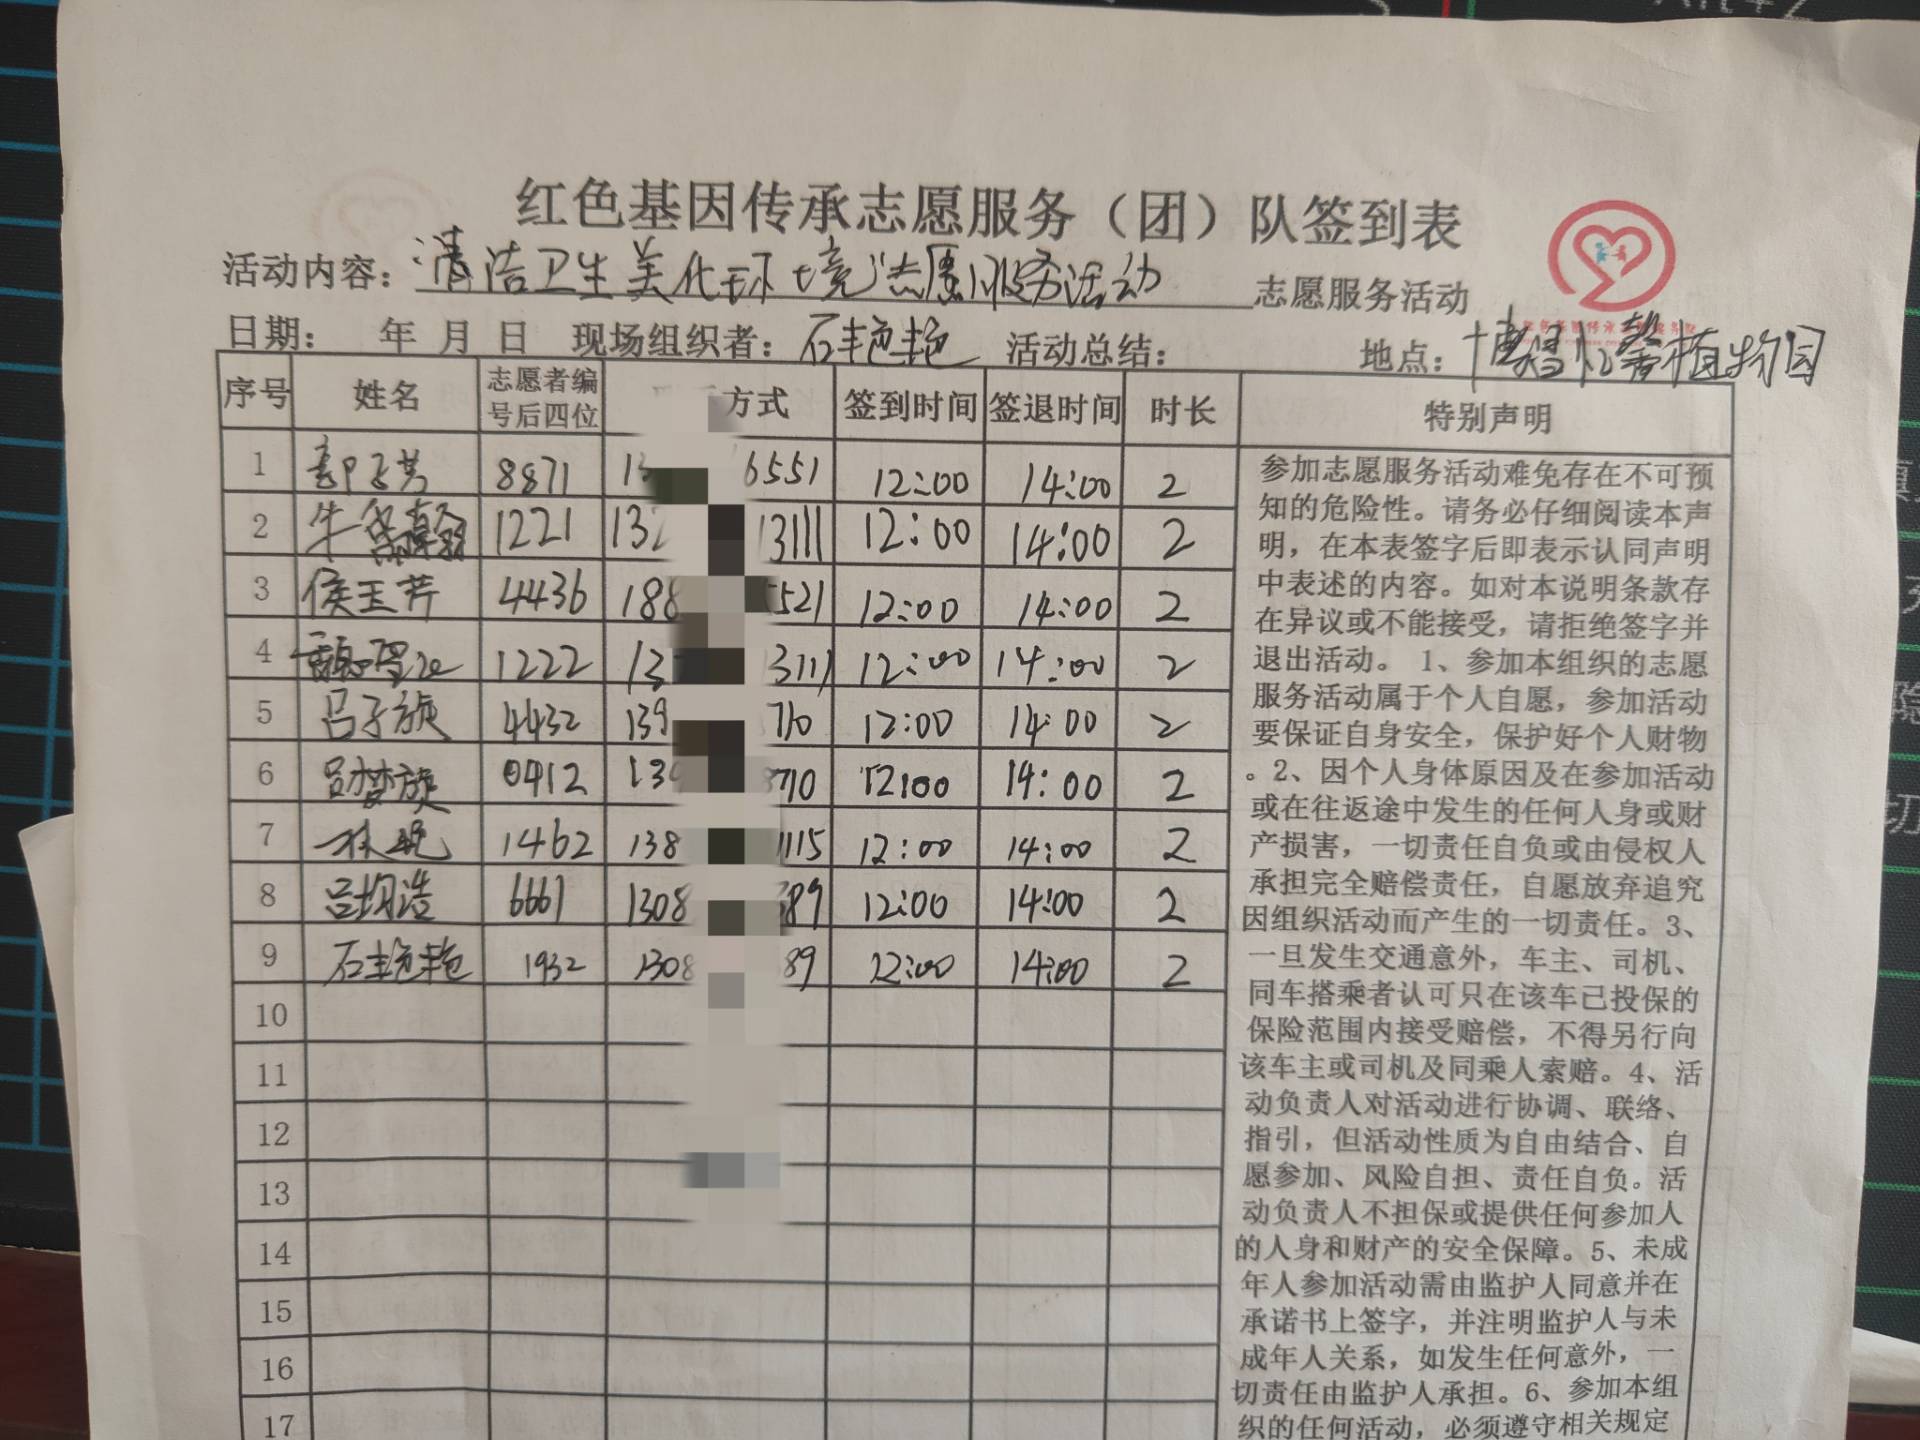 红色基因传承志愿服务（团）队签到表
活动内容：清洁卫生美化环境"志愿服务活动 志愿服务活动
日期： 年 月 日 现场组织者：石艳艳 活动总结： 地点：博昌怡馨植物园
序号 姓名 志愿者编号后四位 方式 签到时间 签退时间 时长 特别声明
1 郭子芳 8871 13 6551 12:00 14:00 2
2 牛 1221 132 13111 12:00 14:00 2
3 侯玉芹 4436 188 5521 12:00 14:00 2
4 1222 13 3111 12:00 14:00 2
5 吕子旋 4432 139 710 12:00 14:00 2
6 吕梦旋 0412 139 8710 12:00 14:00 2
7 1462 138 1115 12:00 14:00 2
8 吕均浩 6661 1308 789 12:00 14:00 2
9 石艳艳 1932 1308 89 12:00 14:00 2
10
11
12
13
14
15
16
17
参加志愿服务活动难免存在不可预
知的危险性。请务必仔细阅读本声
明，在本表签字后即表示认同声明
中表述的内容。如对本说明条款存
在异议或不能接受，请拒绝签字并
退出活动。 1、参加本组织的志愿
服务活动属于个人自愿，参加活动
要保证自身安全，保护好个人财物
。2、因个人身体原因及在参加活动
或在往返途中发生的任何人身或财
产损害，一切责任自负或由侵权人
承担完全赔偿责任，自愿放弃追究
因组织活动而产生的一切责任。3、
一旦发生交通意外，车主、司机、
同车搭乘者认可只在该车已投保的
保险范围内接受赔偿，不得另行向
该车主或司机及同乘人索赔。4、活
动负责人对活动进行协调、联络、
指引，但活动性质为自由结合、自
愿参加、风险自担、责任自负。活
动负责人不担保或提供任何参加人
的人身和财产的安全保障。5、未成
年人参加活动需由监护人同意并在
承诺书上签字，并注明监护人与未
成年人关系，如发生任何意外，一
切责任由监护人承担。6、参加本组
织的任何活动，必须遵守相关规定